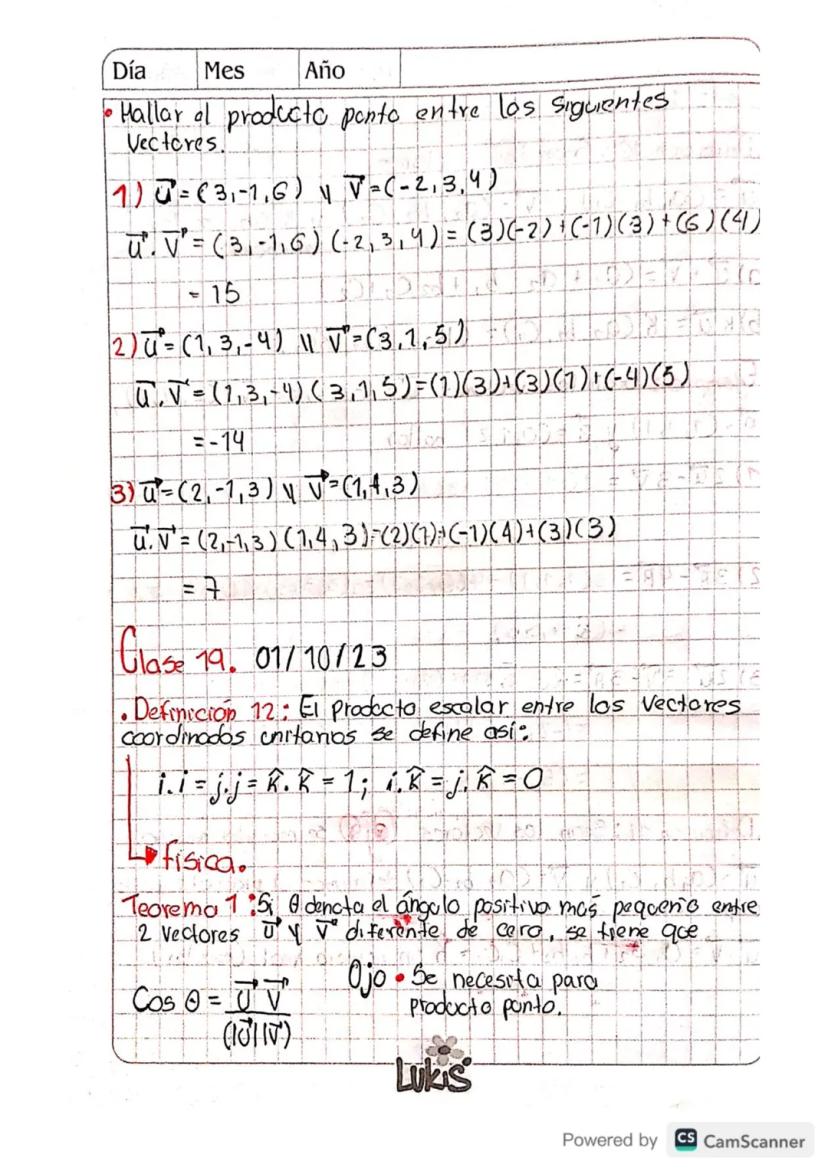 Día Mes Año
• Hallar el producto punto entre los siguientes
vectores.
1) u⃗ = (3,-1,6) y v⃗ = (-2,3,4)
u⃗. v⃗ = (3,-1,6) (-2,3,4) = (3)(-2)+(-1)(3)+(6)(4)
= 15
2) u⃗ = (1,3,-4) y v⃗ = (3,1,-5)
u⃗. v⃗ = (1,3,-4) (3,1,5) = (1)(3)+(3)(1)+(-4)(5)
= -14
3) u⃗ = (2,-1,3) y v⃗ = (1,4,3)
u⃗. v⃗ = (2,-1,3) (1,4,3) = (2)(1)+(-1)(4)+(3)(3)
= 7
Clase 19. 01/10/23
. Definición 12: El producto escalar entre los vectores
coordinados unitarios se define así:
i.i = j.j = k̂. k̂ = 1; i. k̂ = j. k̂ = 0
física.
Teorema 1: Si θ denota el ángulo positivo mas pequeño entre
2 vectores u⃗ y v⃗ diferente de cero, se tiene que
Ojo • Se necesita para
producto punto.
Cos θ = u⃗ v⃗
(|u⃗||v⃗|)
Lukis
Powered by CS CamScanner